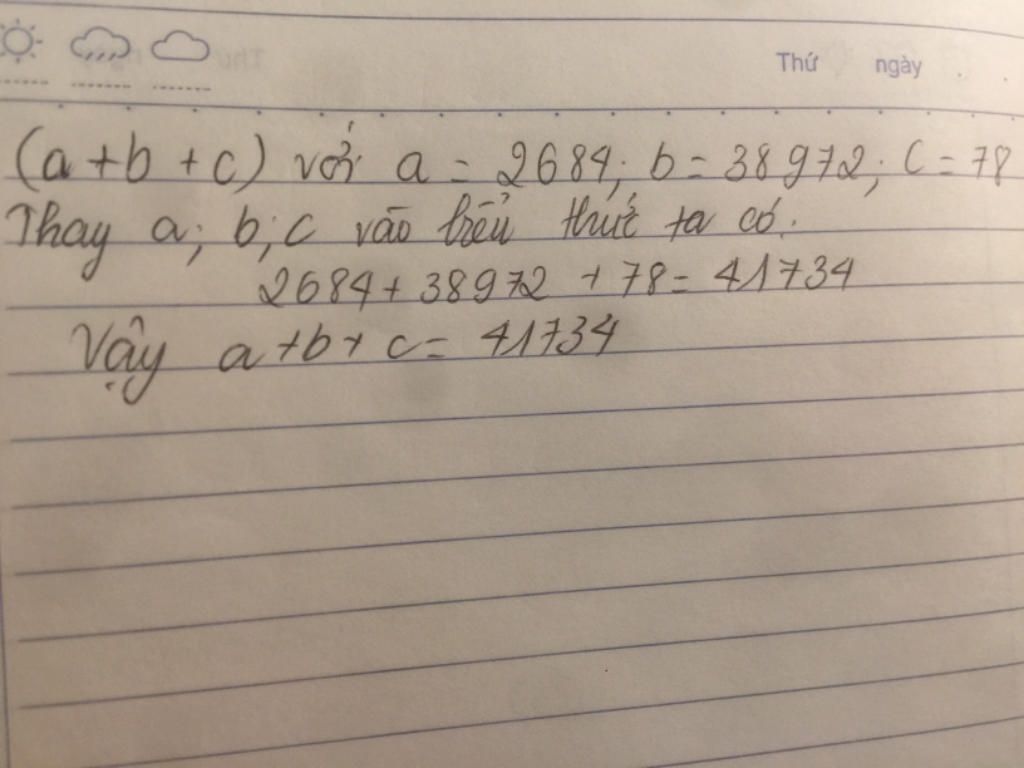 Thứ ngày
(a + b + c) với a = 2684; b = 38972; c = 78
Thay a; b; c vào biểu thức ta có.
2684 + 38972 + 78 = 41734
Vậy a + b + c = 41734